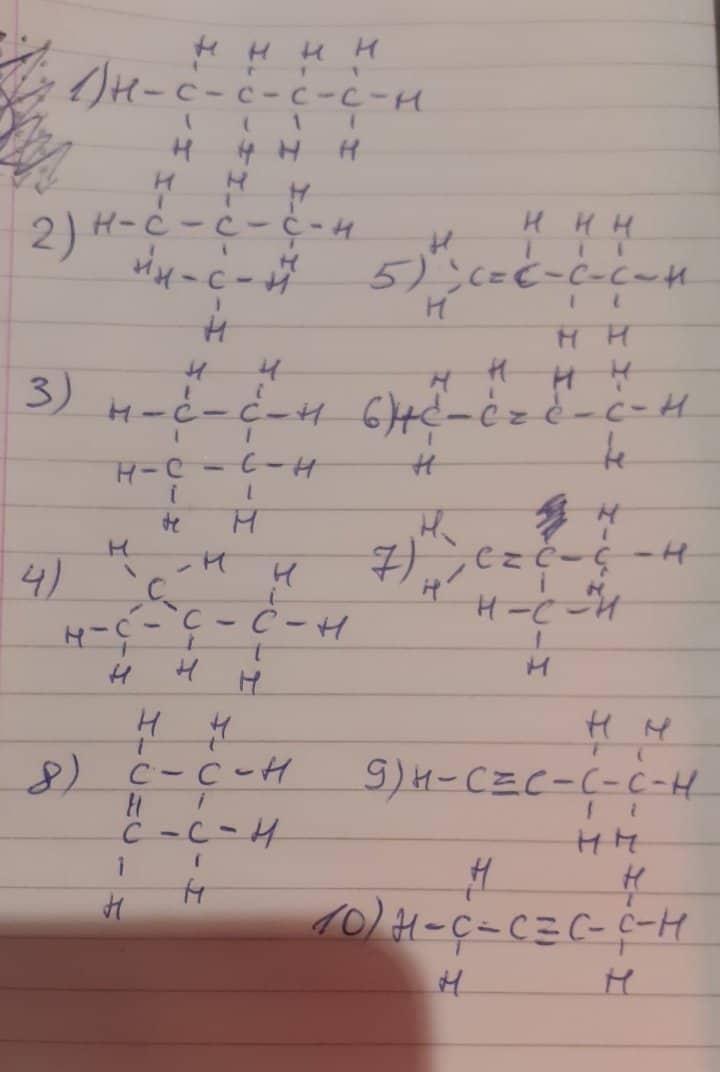 H H H H
1) H - C - C - C - C - H
H H H H
H H H
2) H - C - C - C - H
H H
H - C - H
H
H H
3) H - C - C - H
H - C - C - H
H H
H H
4) C H
H - C - C - C - H
H H H
H H H
5) H C = C - C - C - H
H H H
H H H H
6) H C - C = C - C - H
H H
H H
7) C = C - C - H
H H
H - C - H
H
H H
8) C - C - H
C - C - H
H H
H H
9) H - C ≡ C - C - C - H
H H
H H
10) H - C - C ≡ C - C - H
H H